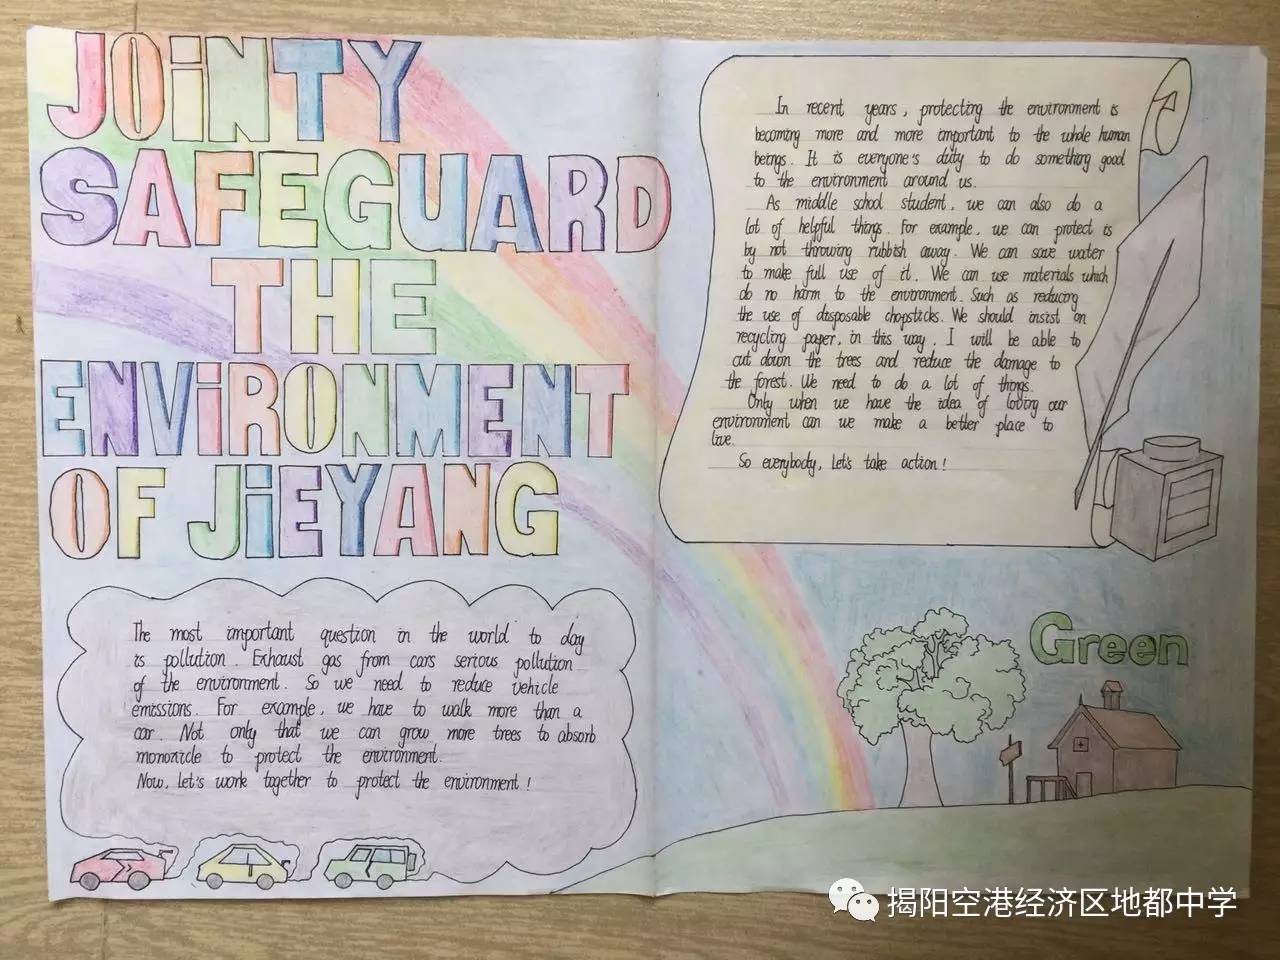 JOiNTY
SAFEGUARD
THE
ENViRONMENT
OF JiEYANG
In recent years, protecting the environment is
becoming more and more important to the whole human
beings. It is everyone's duty to do something good
to the environment around us.
As middle school student, we can also do a
lot of helpful things. For example, we can protect is
by not throwing rubbish away. We can save water
to make full use of it. We can use materials which
do no harm to the environment. Such as reducing
the use of disposable chopsticks. We should insist on
recycling paper, in this way, I will be able to
cut down the trees and reduce the damage to
the forest. We need to do a lot of things.
Only when we have the idea of loving our
environment can we make a better place to
live.
So everybody, Let's take action!
The most important question in the world to day
is pollution. Exhaust gas from cars serious pollution
of the environment. So we need to reduce vehicle
emissions. For example, we have to walk more than a
car. Not only that we can grow more trees to absorb
to protect the environment.
Now, Let's work together to protect the environment!
Green
揭阳空港经济区地都中学